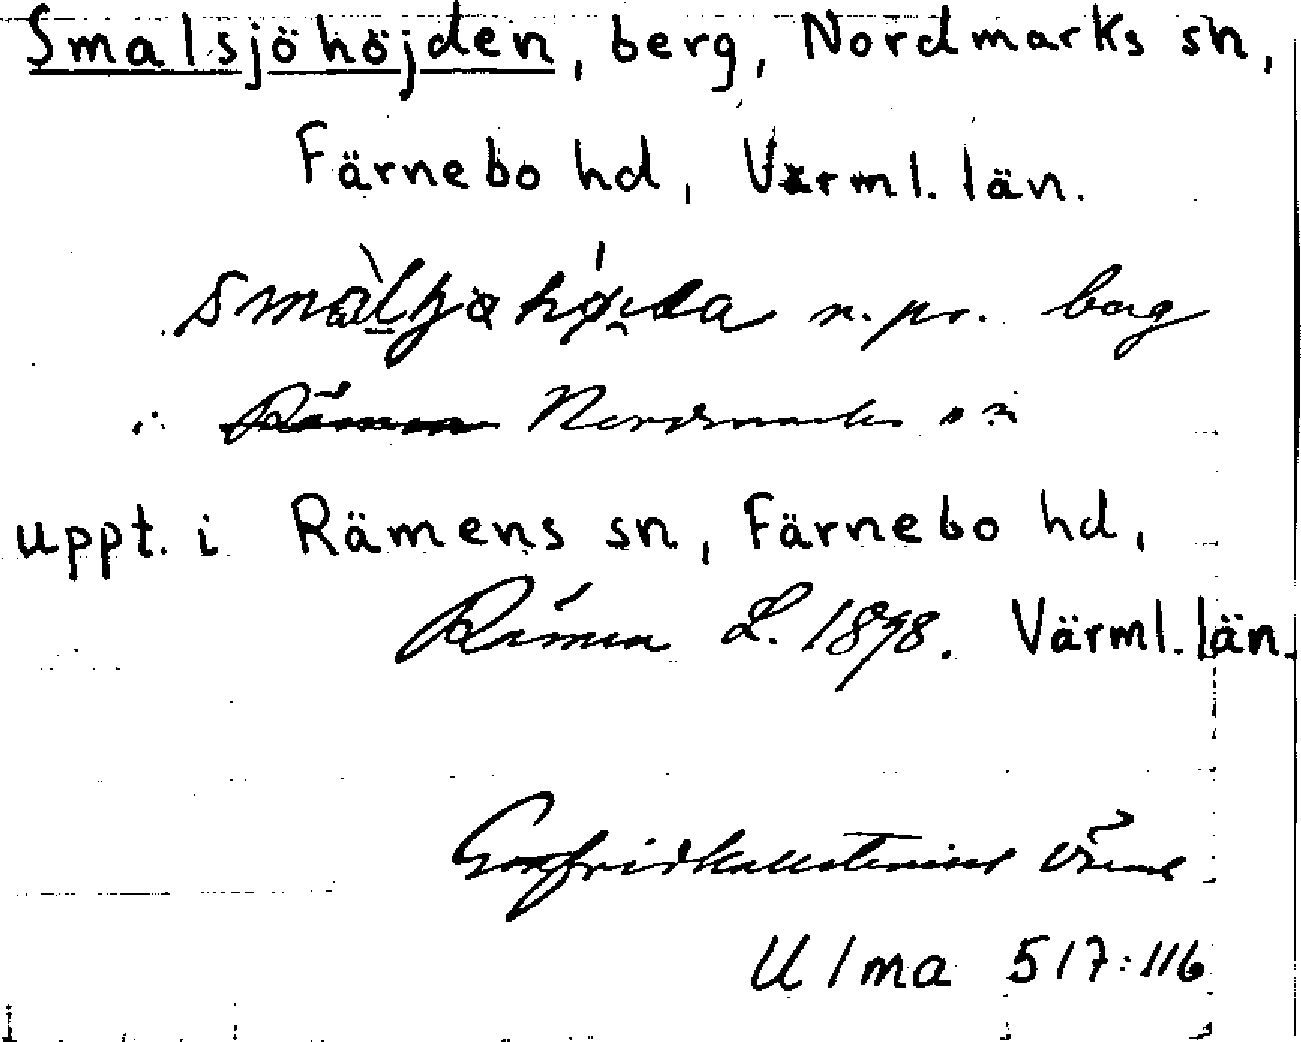 Smalsjöhöjden, berg, Nordmarks sn,
Färnebo hd, Värml. län.
n. pr. berg
i Nordmarks sn
uppt. i Rämens sn, Färnebo hd,
Rämen L. 1898. Värml. län.
Gottfrid Kallstenius
Ulma 517:116